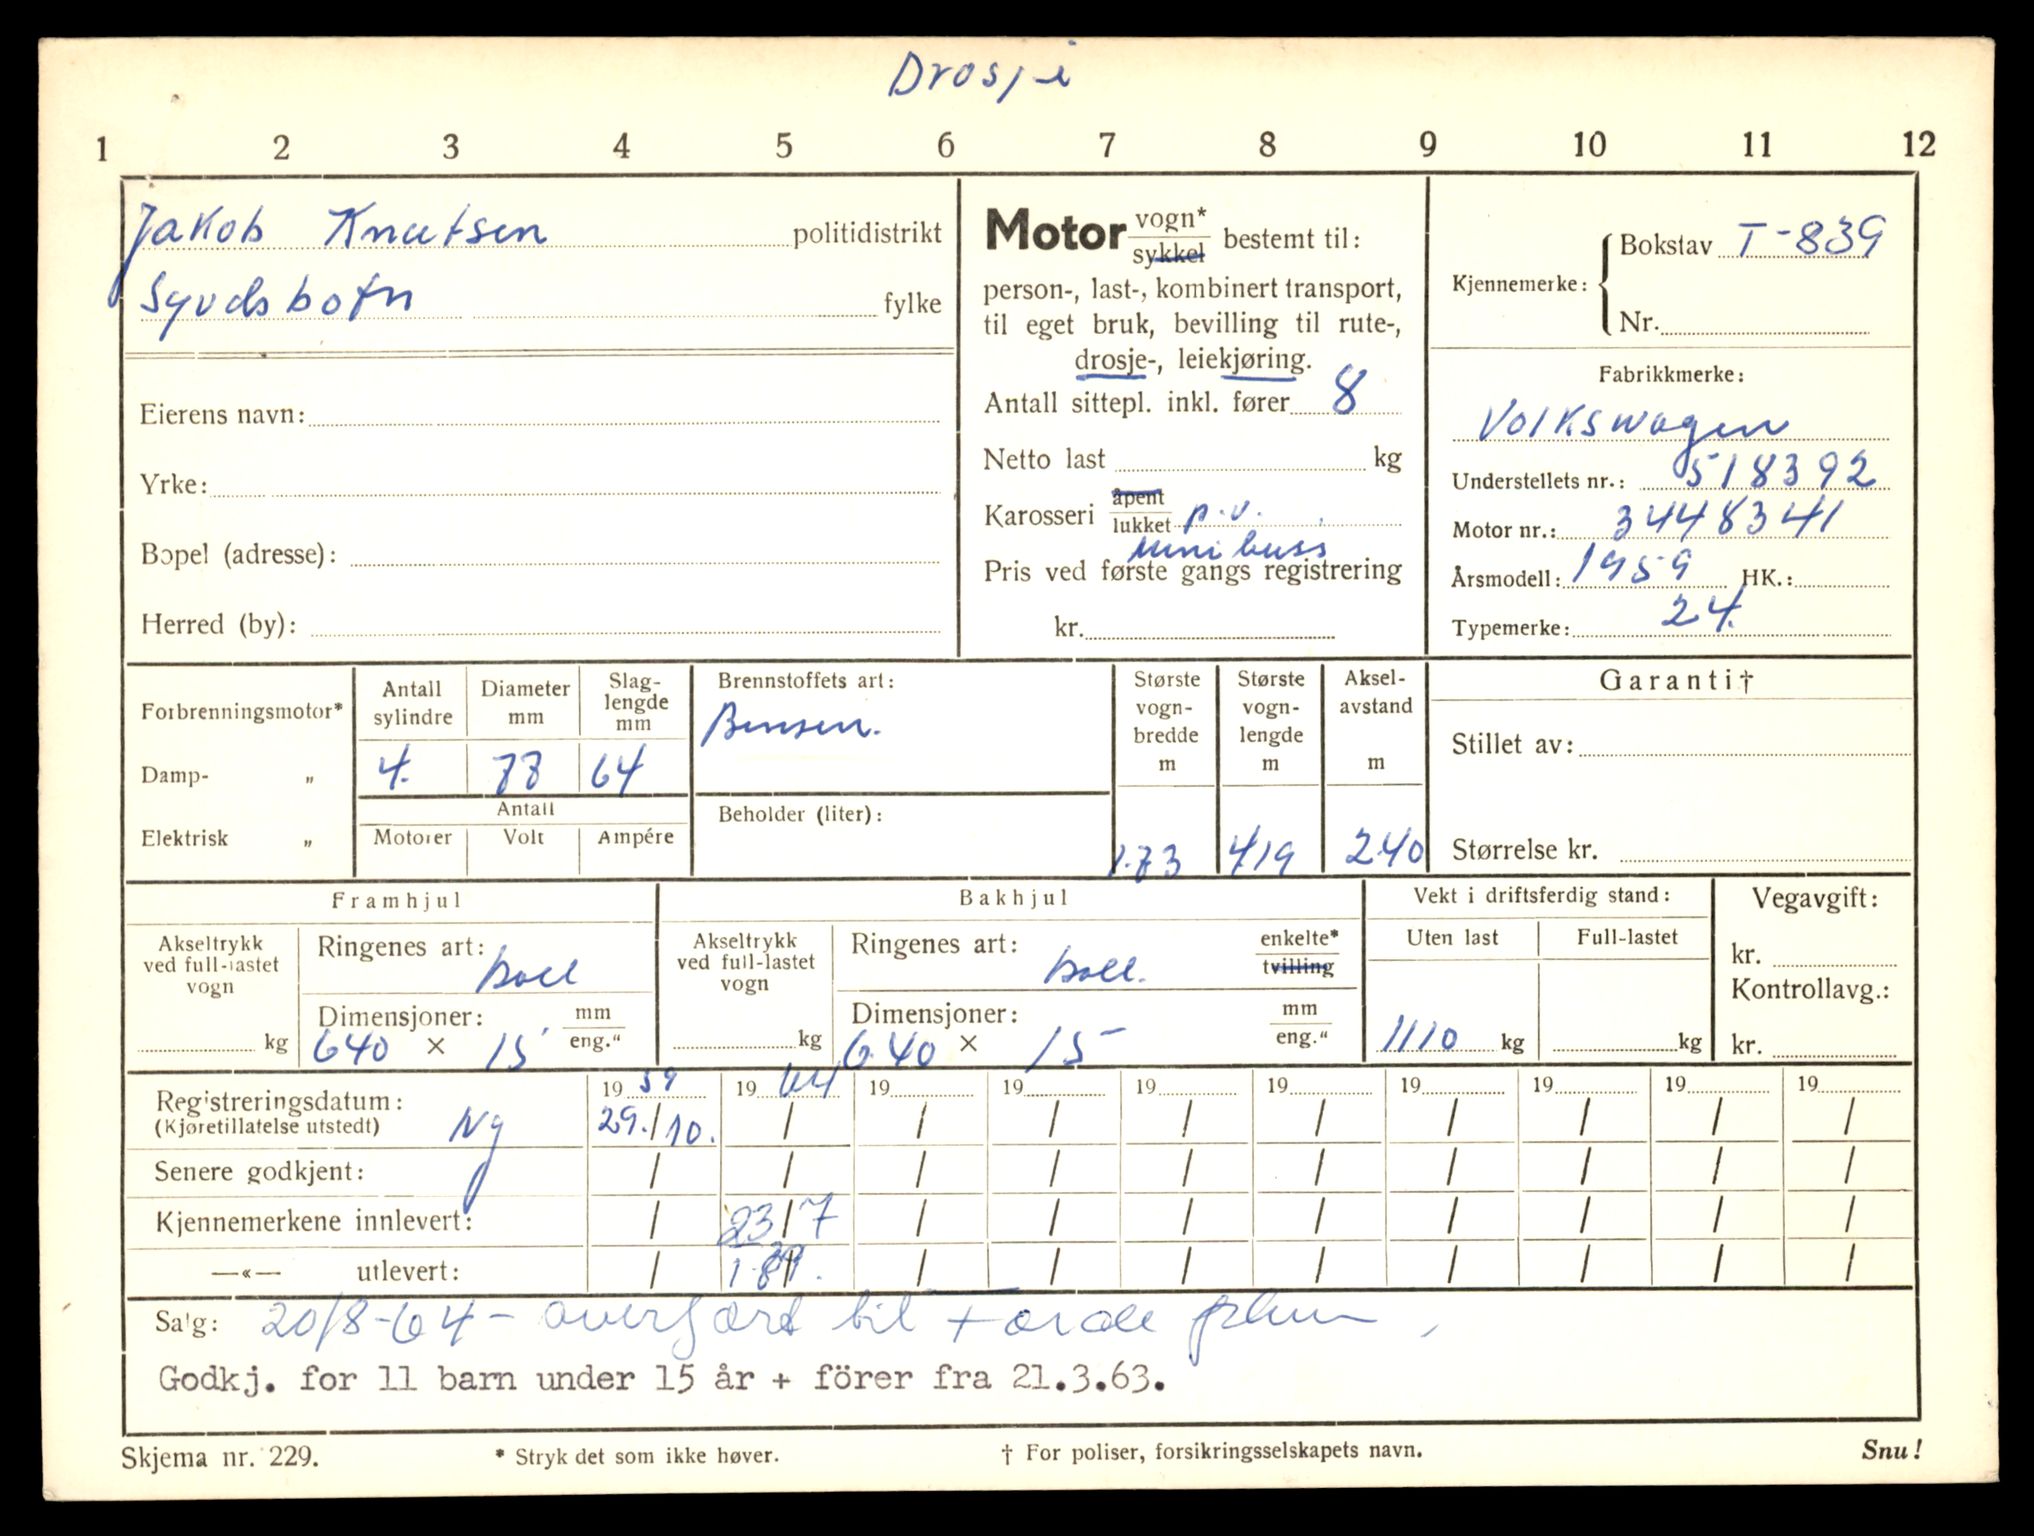 Drosje
1 2 3 4 5 6 7 8 9 10 11 12
Jakob Knutsen politidistrikt
Syvdsbotn fylke
Eierens navn:
Yrke:
Bopel (adresse):
Herred (by):
Motor vogn* sykkel bestemt til:
person-, last-, kombinert transport,
til eget bruk, bevilling til rute-,
drosje-, leiekjøring.
Antall sittepl. inkl. fører 8
Netto last kg
Karosseri åpent lukket p.v.
mini buss
Pris ved første gangs registrering
kr.
Kjennemerke: Bokstav T-839
Nr.
Fabrikkmerke:
Volkswagen
Understellets nr.: 518392
Motor nr.: 3448341
Årsmodell: 1959 HK.:
Typemerke: 24.
Forbrenningsmotor*
Damp- "
Elektrisk "
Antall sylindre 4.
Diameter mm 77
Slag-lengde mm 64
Antall
Motorer Volt Ampére
Brennstoffets art:
Bensin.
Beholder (liter):
Største vogn-bredde m 1.73
Største vogn-lengde m 419
Aksel-avstand m 240
Garanti†
Stillet av:
Størrelse kr.
Framhjul
Akseltrykk ved full-lastet vogn kg
Ringenes art:
Dimensjoner: mm eng."
640 × 15
Bakhjul
Akseltrykk ved full-lastet vogn kg
Ringenes art: enkelte* tvilling
Dimensjoner: mm eng."
6.40 × 15
Vekt i driftsferdig stand:
Uten last Full-lastet
1110 kg kg
Vegavgift:
kr.
Kontrollavg.:
kr.
19 59 19 64 19 19 19 19 19 19 19 19
Registreringsdatum:
(Kjøretillatelse utstedt) Ny 29. / 10. / / / / / / / / /
Senere godkjent: / / / / / / / / / /
Kjennemerkene innlevert: / 23 / 7 / / / / / / / /
—«— utlevert: / / / / / / / / /
Salg: 20/8-64 - overført til
Godkj. for 11 barn under 15 år + förer fra 21.3.63.
Skjema nr. 229.
* Stryk det som ikke høver.
† For poliser, forsikringsselskapets navn.
Snu!